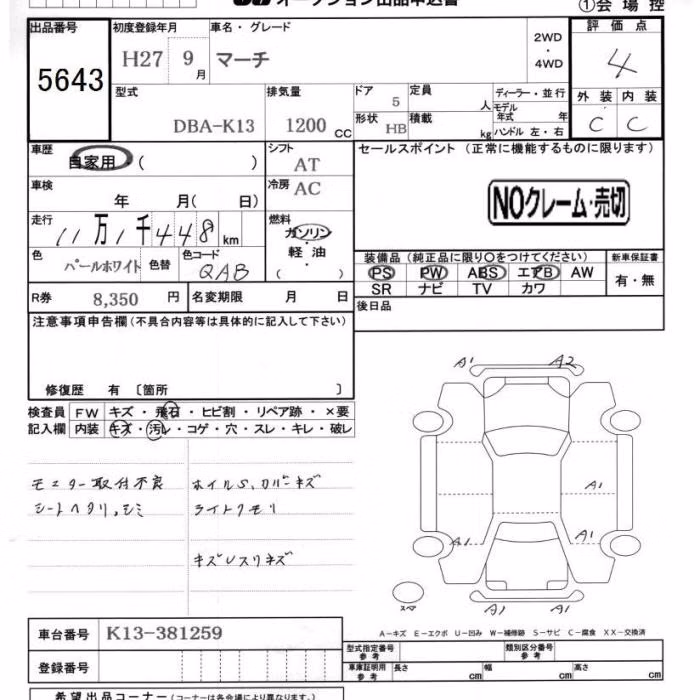 オークション出品申込書
①会場控
出品番号 初度登録年月 車名・グレード 2WD・4WD 評価点
5643 H27 9月 マーチ 4
型式 排気量 ドア 5 定員 人 ディーラー・並行 外装 内装
モデル年式 年
DBA-K13 1200cc 形状 HB 積載 kg ハンドル 左・右 C C
車歴 自家用 ( ) シフト AT セールスポイント (正常に機能するものに限ります)
車検 年 月( 日) 冷房 AC
NOクレーム・売切
走行 11万1千448km 燃料 ガソリン・軽油 ( )
色 パールホワイト 色替 色コード QAB
装備品 (純正品に限り○をつけてください) 新車保証書
PS PW ABS エアB AW 有・無
SR ナビ TV カワ
R券 8,350円 名変期限 月 日 後日品
注意事項申告欄(不具合内容等は具体的に記入して下さい)
修復歴 有 〔箇所 〕
検査員 FW キズ・飛石・ヒビ割・リペア跡・×要
記入欄 内装 キズ・汚レ・コゲ・穴・スレ・キレ・破レ
モニター取付不良 ホイルS,カバーキズ
シートヘタリ,シミ ライトクモリ
キズUスリキズ
A1 A2
A1
A1 A1
A1 A1
スペア
A―キズ E―エクボ U―凹み W―補修跡 S―サビ C―腐食 XX―交換済
車台番号 K13-381259
型式指定番号 参考 類別区分番号 参考
登録番号 車庫証明用 参考 長さ cm 幅 cm 高さ cm
希望出品コーナー(コーナーは各会場により異なります。)